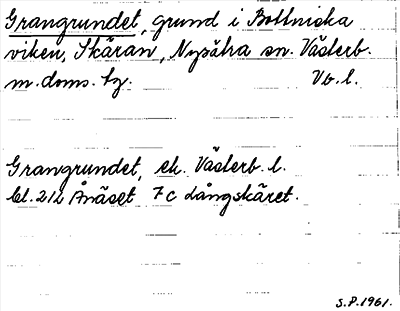 Grangrundet, grund i Bottniska
viken, Skäran, Nysätra sn. Västerb.
m. doms. tg. Vb. l.
Grangrundet, ek. Västerb. l.
bl. 212 Ånäset 7c Långskäret.
S.P. 1961.